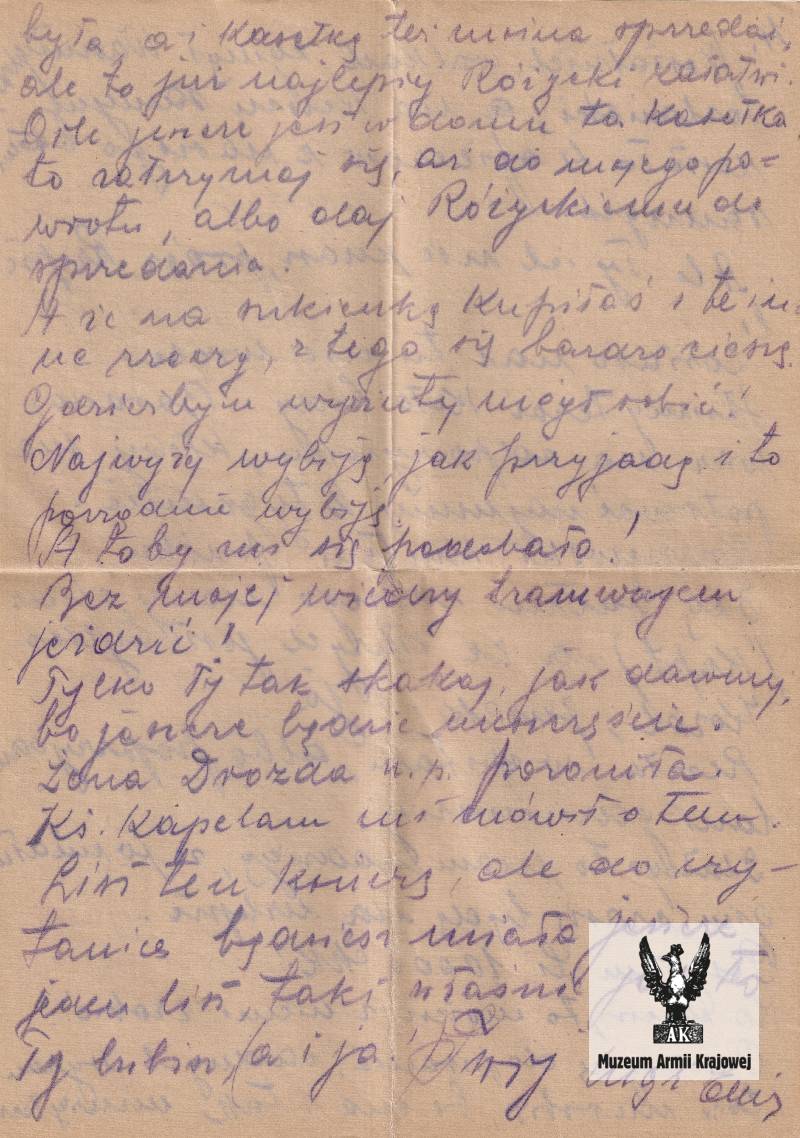 była, a i kasetkę też można sprzedać,
ale to już najlepiej Różycki załatwi.
O ile jeszcze jest w domu ta kasetka,
to zatrzymaj się, aż do mojego po=
wrotu, albo daj Różyckiemu do
sprzedania.
A że na sukienkę kupiłaś i te in-
ne rzeczy, z tego się bardzo cieszę.
Gdzieżbym wyrzuty mógł robić!
Najwyżej wybiję, jak przyjadę i to
porządnie wybiję.
A toby mi się podobało!
Bez mojej wiedzy tramwajem
jeździć!
Tylko Ty tak skakaj, jak dawniej,
bo jeszcze będzie nieszczęście.
Żona Drozda n.p. poroniła.
Ks. Kapelan mi mówił o tem.
List ten kończę, ale do czy-
tania będziesz miała jeszcze
jeden list taki właśnie to
Ty lubisz (a i ja!)
AK
Muzeum Armii Krajowej